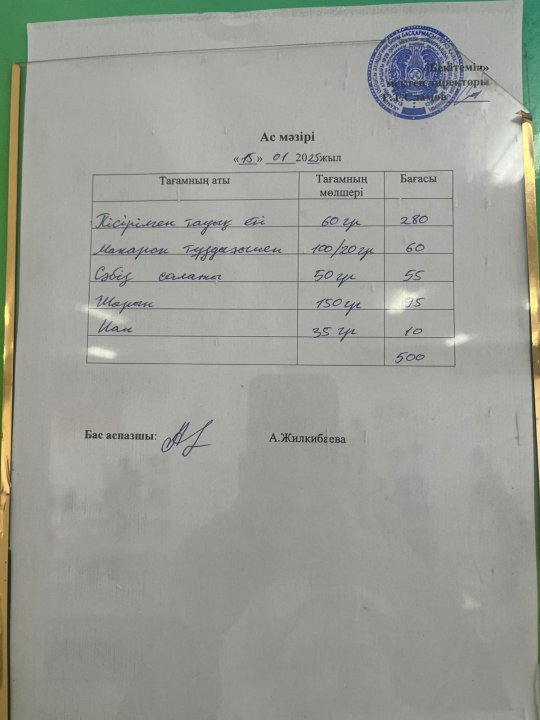 «Бекітемін»
мектеп директоры
Ас мәзірі
«15» 01 2025жыл
Тағамның аты Тағамның мөлшері Бағасы
Пісірілген тауық еті 60 гр 280
Макарон тұздығымен 100/20 гр 60
Сәбіз салаты 50 гр 55
Шырын 150 гр 95
Нан 35 гр 10
500
Бас аспазшы: А.Жилкибаева